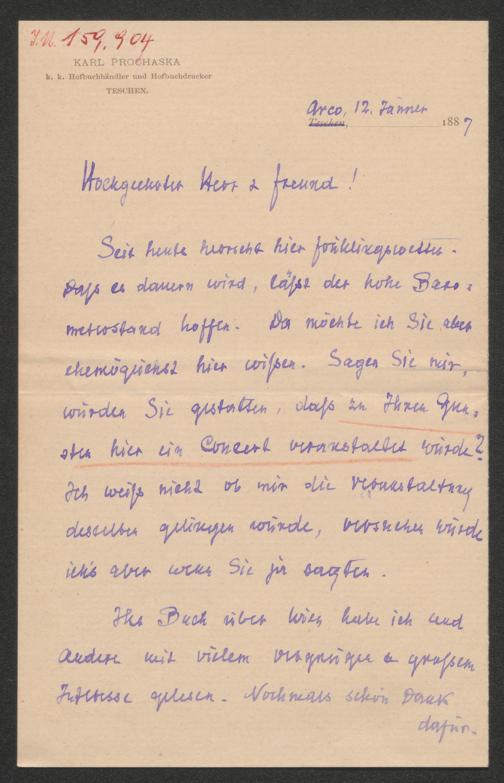 J.N. 159.904
KARL PROCHASKA
k. k. Hofbuchhändler und Hofbuchdrucker
TESCHEN.
Arco, 12. Jänner
Teschen, 1887
Hochgeehrter Herr & Freund!
Seit heute herrscht hier Frühlingswetter.
Daß es dauern wird, läßt der hohe Baro=
meterstand hoffen. Da möchte ich Sie aber
ehemöglichst hier wißen. Sagen Sie mir,
würden Sie gestatten, daß zu Ihren Gun=
sten hier ein Concert veranstaltet würde?
Ich weiß nicht ob mir die Veranstaltung
desselben gelingen würde, versuchen würde
ich's aber wenn Sie ja sagten.
Ihr Buch über Wien habe ich und
Andere mit vielem Vergnügen & großem
Interesse gelesen. Nochmals schön Dank
dafür.